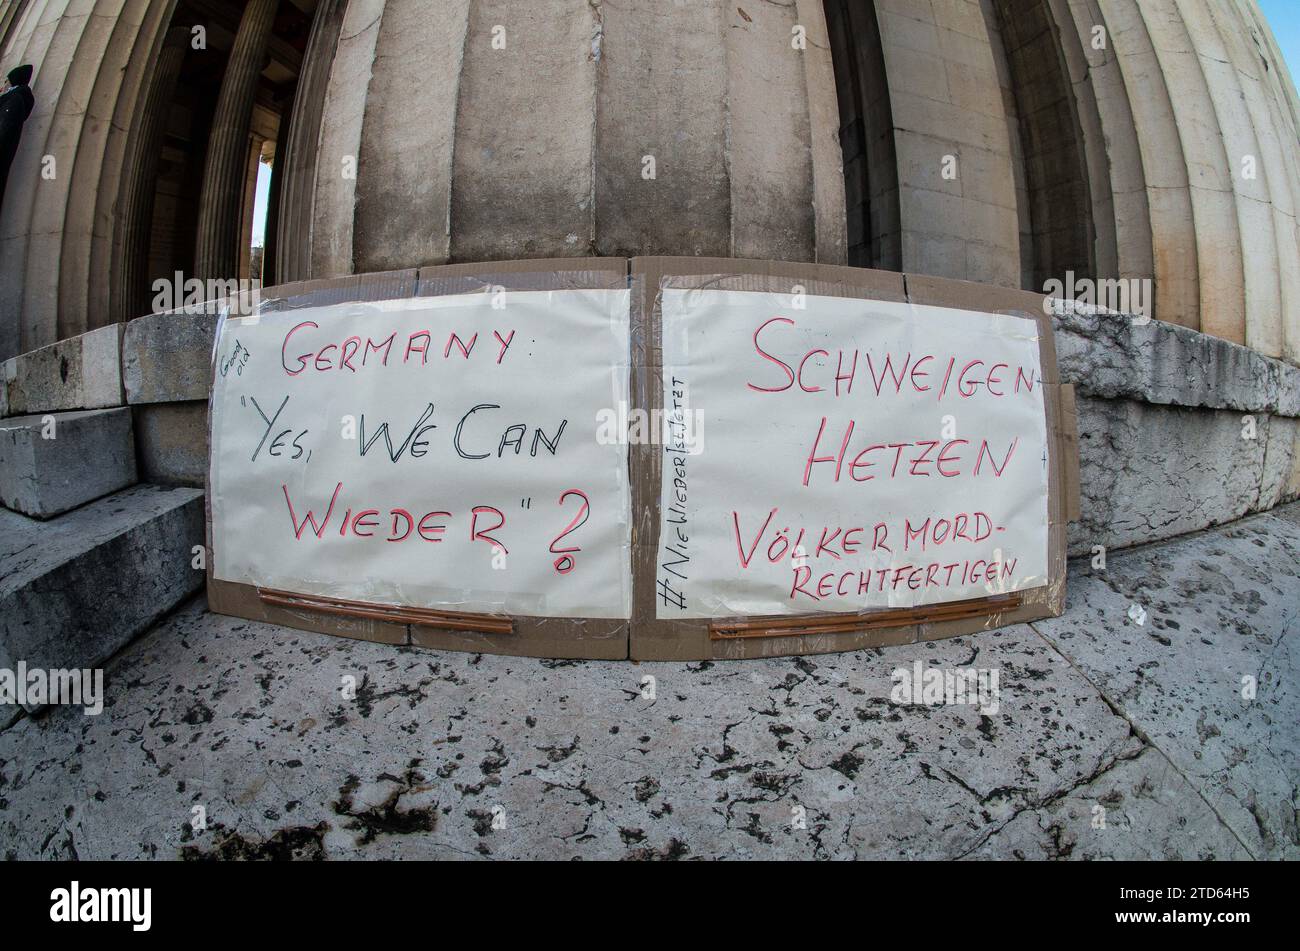 Good
old
GERMANY:
"YES, WE CAN
WIEDER"?
#NIEWIEDERISTJETZT
SCHWEIGEN+
HETZEN+
VÖLKERMORD-
RECHTFERTIGEN
alamy
Image ID: 2TD64H5
www.alamy.com